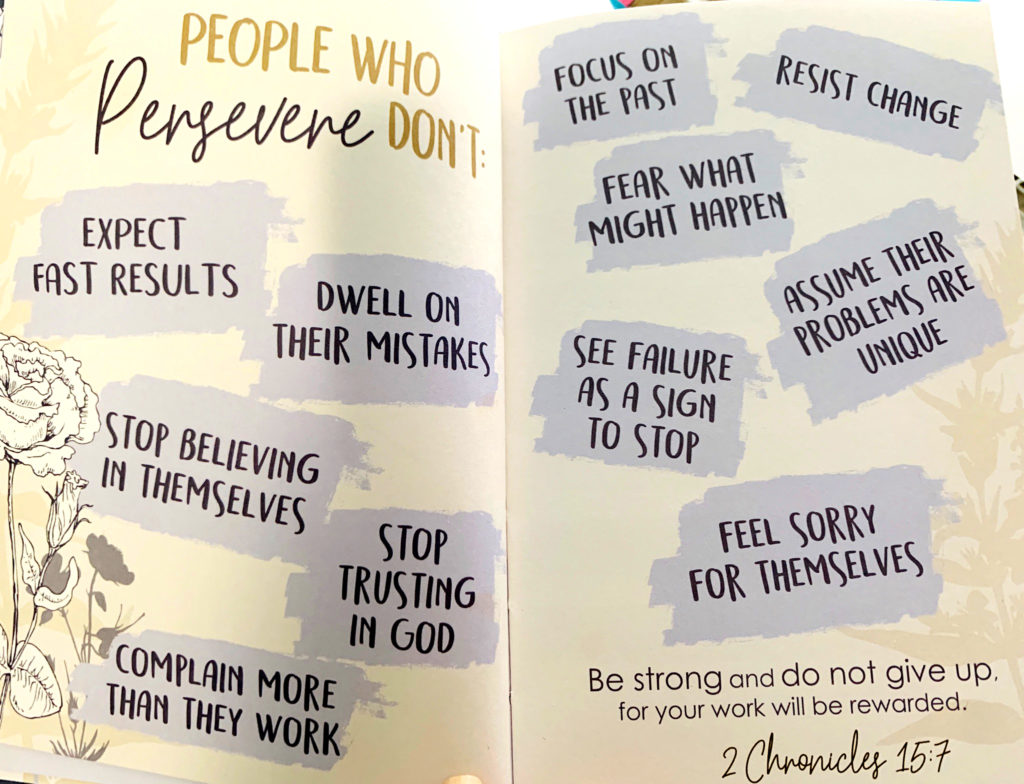 PEOPLE WHO
Persevere DON'T:
EXPECT
FAST RESULTS
DWELL ON
THEIR MISTAKES
STOP BELIEVING
IN THEMSELVES
STOP
TRUSTING
IN GOD
COMPLAIN MORE
THAN THEY WORK
FOCUS ON
THE PAST
RESIST CHANGE
FEAR WHAT
MIGHT HAPPEN
ASSUME THEIR
PROBLEMS ARE
UNIQUE
SEE FAILURE
AS A SIGN
TO STOP
FEEL SORRY
FOR THEMSELVES
Be strong and do not give up,
for your work will be rewarded.
2 Chronicles 15:7